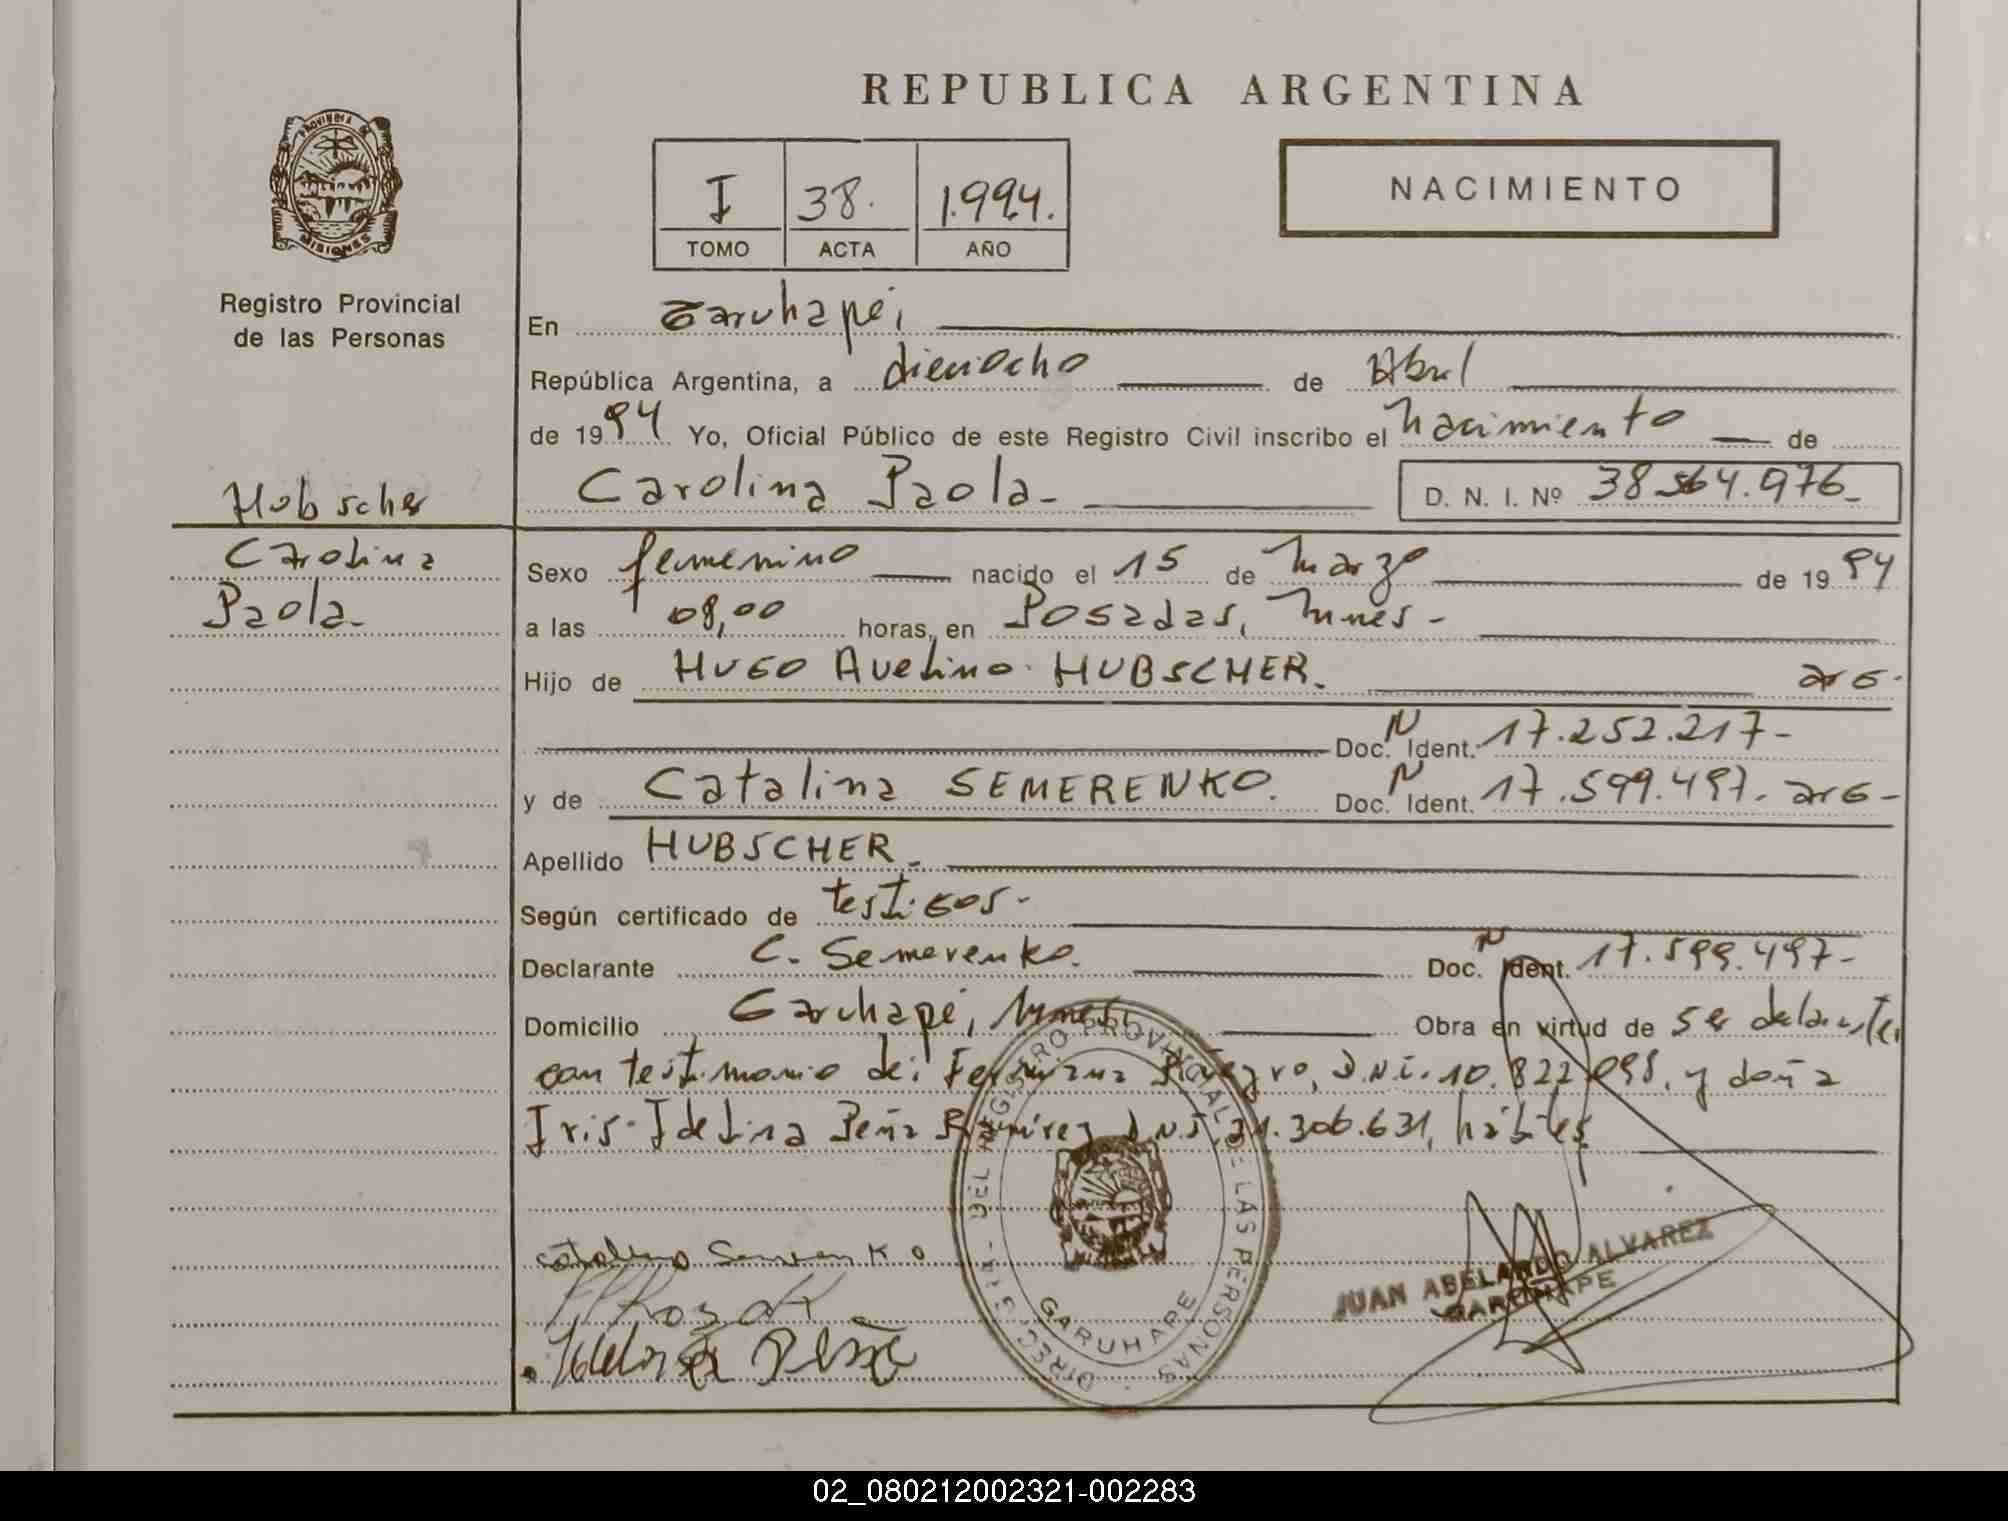 REPUBLICA ARGENTINA
PROVINCIA DE
MISIONES
Registro Provincial
de las Personas
I 38. 1.994.
TOMO ACTA AÑO
NACIMIENTO
En Garuhapé,
República Argentina, a dieciocho de Abril
de 1994 Yo, Oficial Público de este Registro Civil inscribo el Nacimiento de
Carolina Paola- D. N. I. Nº 38.564.976-
Hubscher
Carolina
Paola-
Sexo femenino nacido el 15 de Marzo de 1994
a las 08,00 horas, en Posadas, Mnes-
Hijo de HUGO Avelino HUBSCHER. arg-
Doc. N Ident. 17.252.217-
y de Catalina SEMERENKO. Doc. N Ident. 17.599.497. arg-
Apellido HUBSCHER-
Según certificado de testigos-
Declarante C. Semerenko. Doc. N Ident. 17.599.497-
Domicilio Garuhapé, Mnes. Obra en virtud de ser declarante,
con testimonio de: D.N.I. 10.822.098, y doña
Iris Idelina Peña Ramirez D.N.I. 21.306.631, hábiles
Catalina Semerenko
Idelina Peña
DIRECCIÓN - DEL REGISTRO PROVINCIAL DE LAS PERSONAS
GARUHAPE
JUAN ABELARDO ALVAREZ
GARUHAPE
02_080212002321-002283